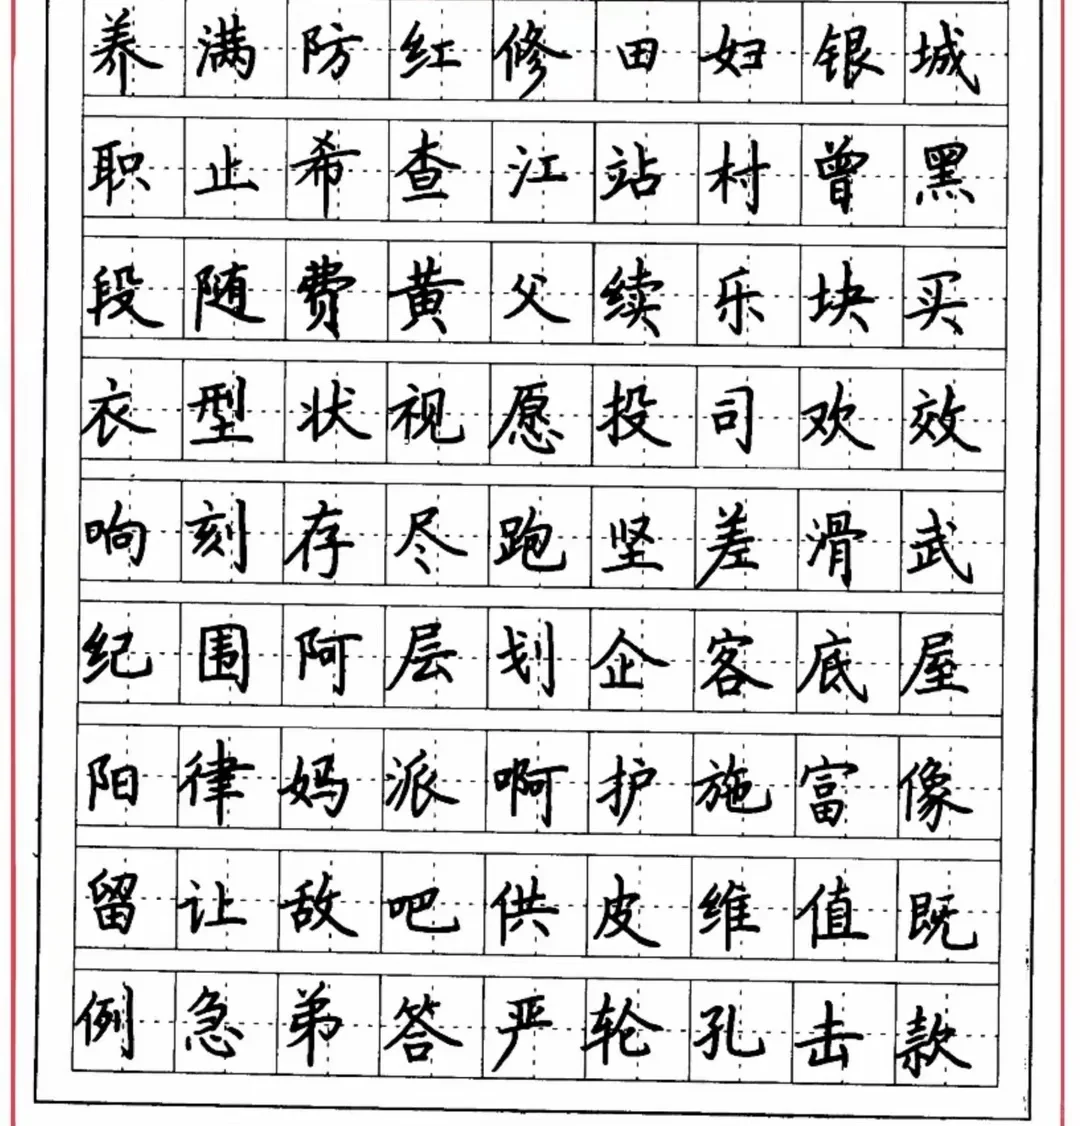 养满防红修田妇银城
职止希查江站村曾黑
段随费黄父续乐块买
衣型状视愿投司欢效
响刻存尽跑坚差滑武
纪围阿层划企客底屋
阳律妈派啊护施富像
留让敌吧供皮维值既
例急弟答严轮孔击款